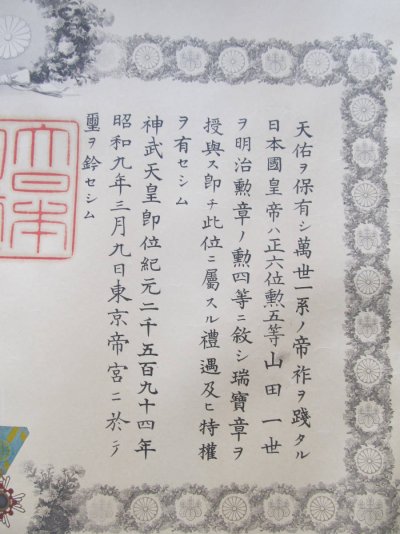 天佑ヲ保有シ萬世一系ノ帝祚ヲ踐タル
日本國皇帝ハ正六位勲五等山田一世
ヲ明治勲章ノ勲四等ニ敍シ瑞寶章ヲ
授與ス卽チ此位ニ屬スル禮遇及ヒ特權
ヲ有セシム
神武天皇卽位紀元二千五百九十四年
昭和九年三月九日東京帝宮ニ於テ
璽ヲ鈐セシム